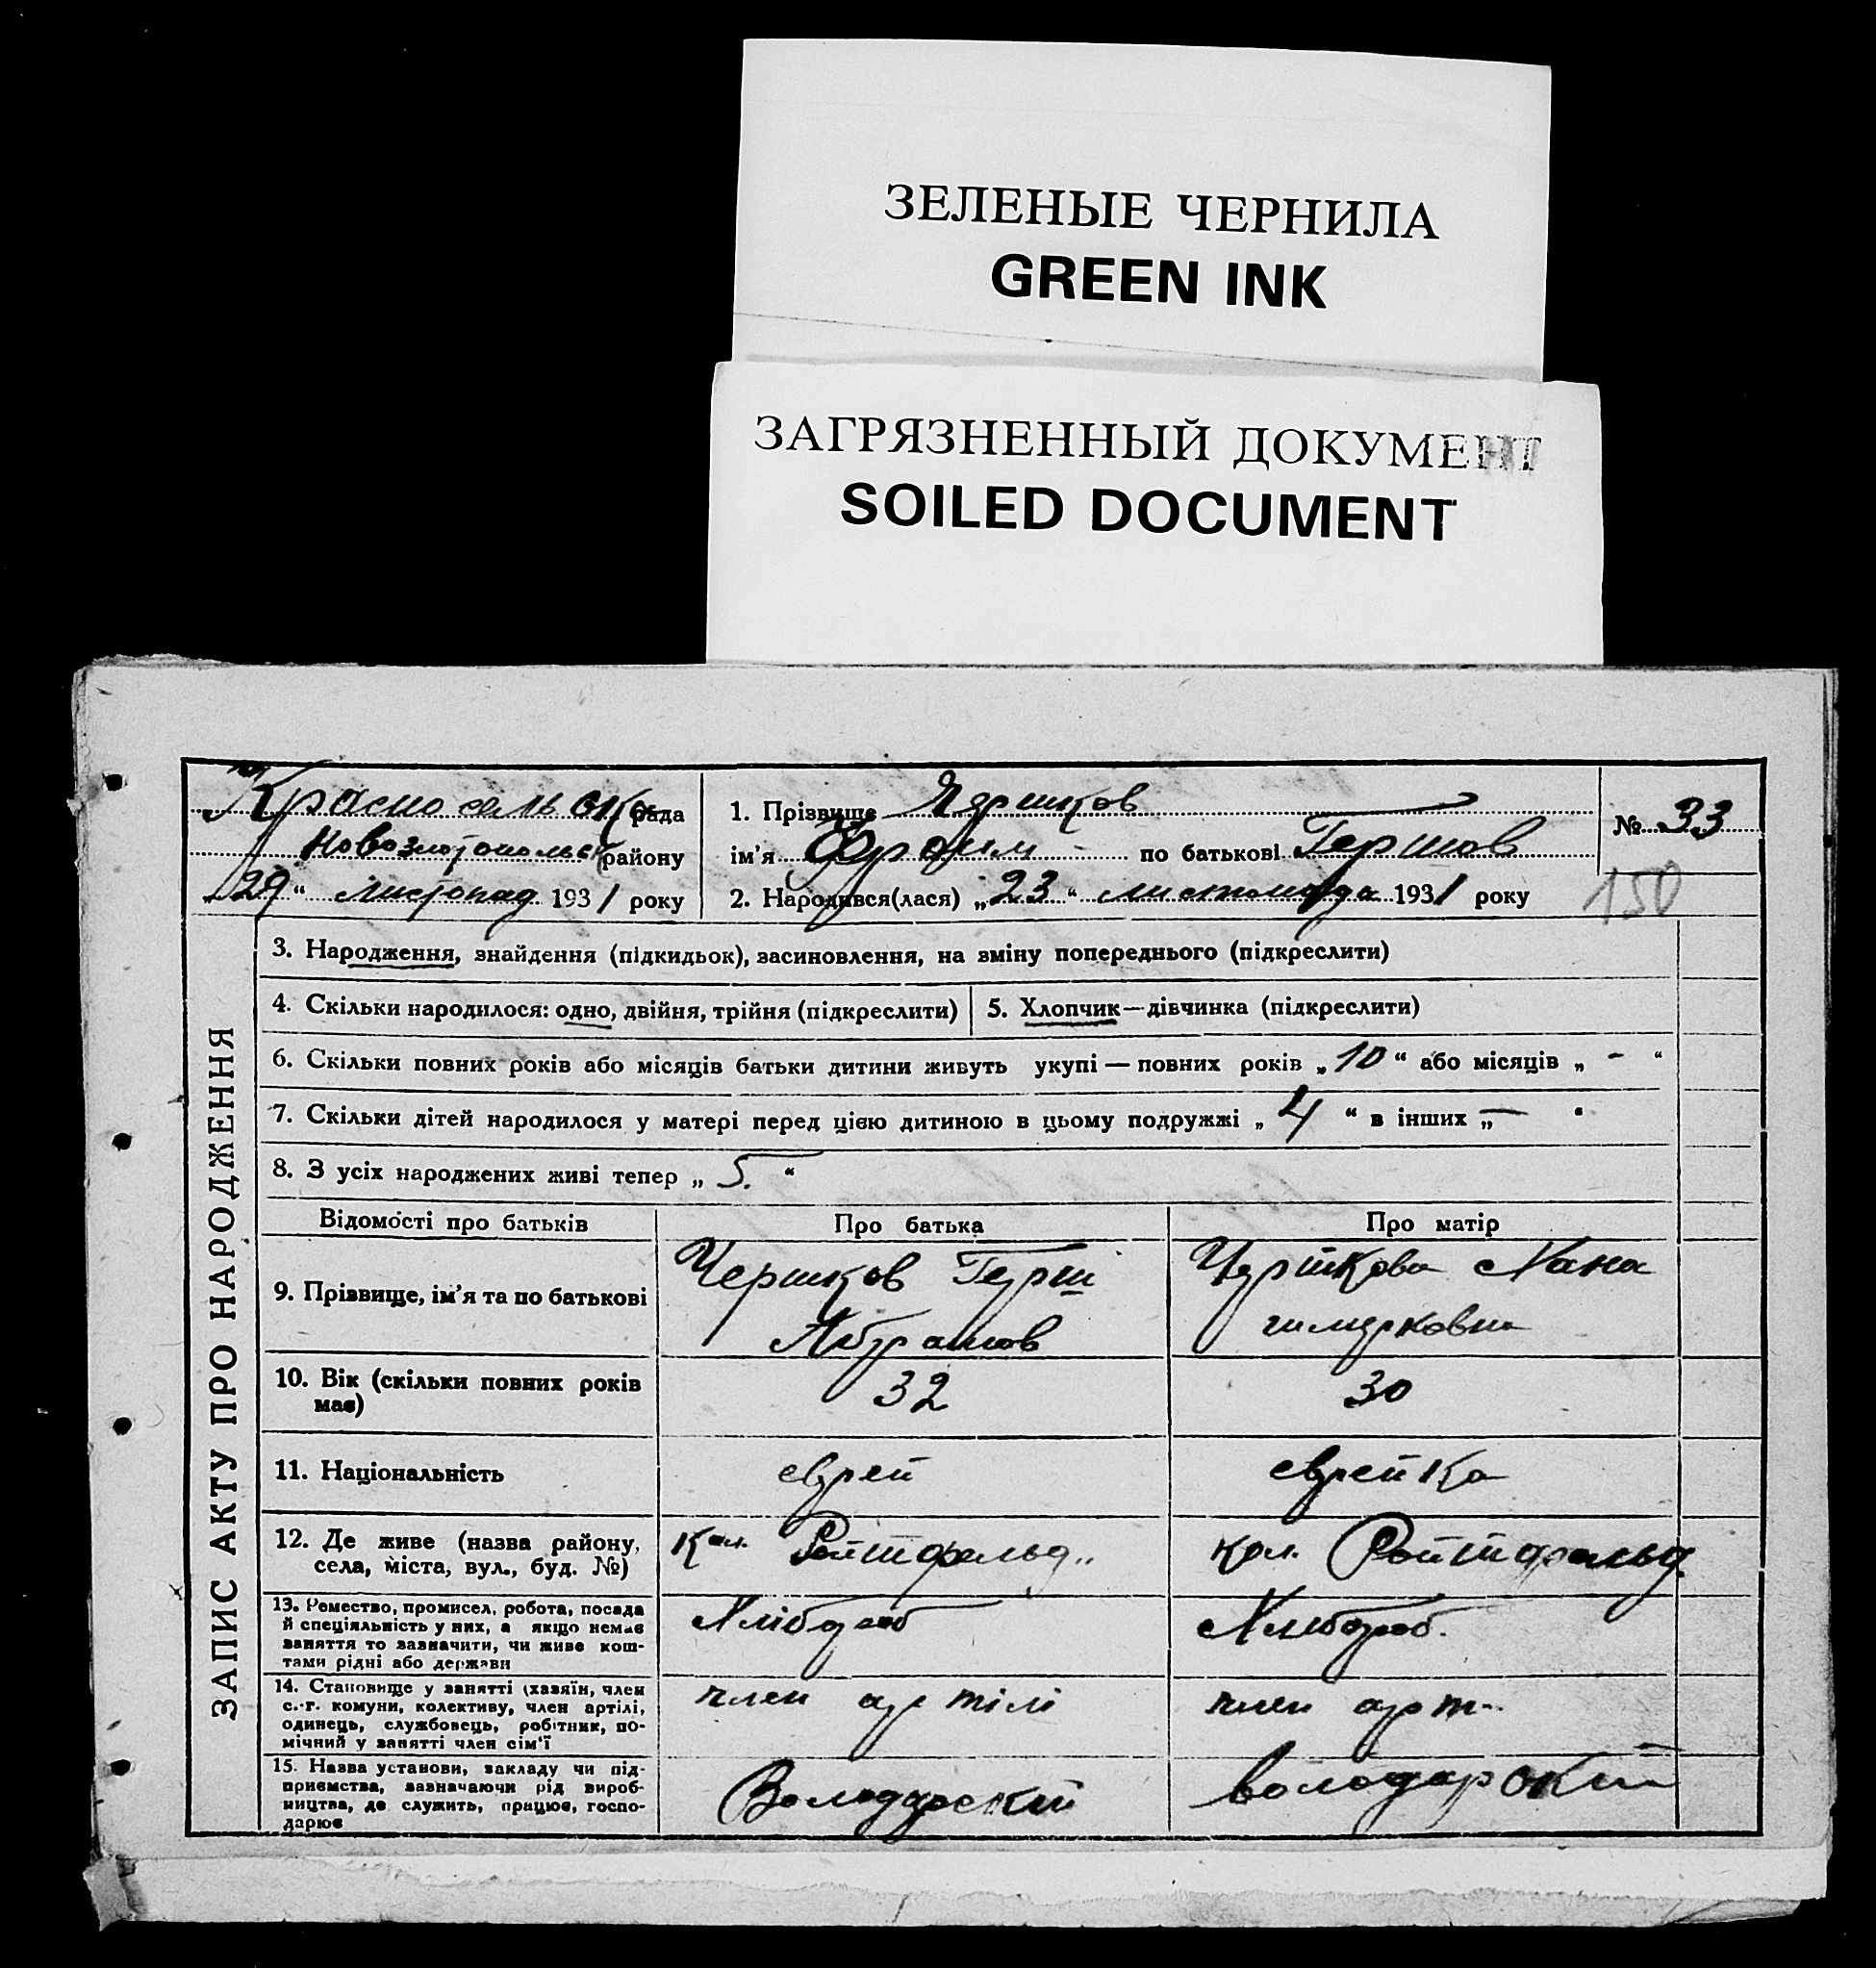 ЗЕЛЕНЫЕ ЧЕРНИЛА
GREEN INK
ЗАГРЯЗНЕННЫЙ ДОКУМЕНТ
SOILED DOCUMENT
Красносельська рада
Новозлотопольськ району
„29“ листопад 1931 року
1. Прізвище Чершков
ім'я Фроим по батькові Гершов
2. Народився(лася) „23“ листопада 1931 року
№ 33
150
ЗАПИС АКТУ ПРО НАРОДЖЕННЯ
3. Народження, знайдення (підкидьок), засиновлення, на зміну попереднього (підкреслити)
4. Скільки народилося: одно, двійня, трійня (підкреслити)
5. Хлопчик—дівчинка (підкреслити)
6. Скільки повних років або місяців батьки дитини живуть укупі — повних років „10“ або місяців „ - “
7. Скільки дітей народилося у матері перед цією дитиною в цьому подружжі „4“ в інших „ — “
8. З усіх народжених живі тепер „5.“
Відомості про батьків Про батька Про матір
9. Прізвище, ім'я та по батькові
Чершков Герш
Абрамов
Чершкова Хана
10. Вік (скільки повних років
має)
32
30
11. Національність
еврей
еврейка
12. Де живе (назва району,
села, міста, вул., буд. №)
кол. Ройтфельд
кол. Ройтфельд
13. Ремество, промисел, робота, посада
й спеціяльність у них, а якщо немає
заняття то зазначити, чи живе кош-
тами рідні або держави
Хлібороб
Хлібороб.
14. Становище у занятті (хазяїн, член
с.-г. комуни, колективу, член артілі,
одинець, службовець, робітник, по-
мічний у занятті член сім'ї
член артілі
член арт.
15. Назва установи, закладу чи під-
приємства, зазначаючи рід вироб-
ництва, де служить, працює, госпо-
дарює
Володарский
Володарский